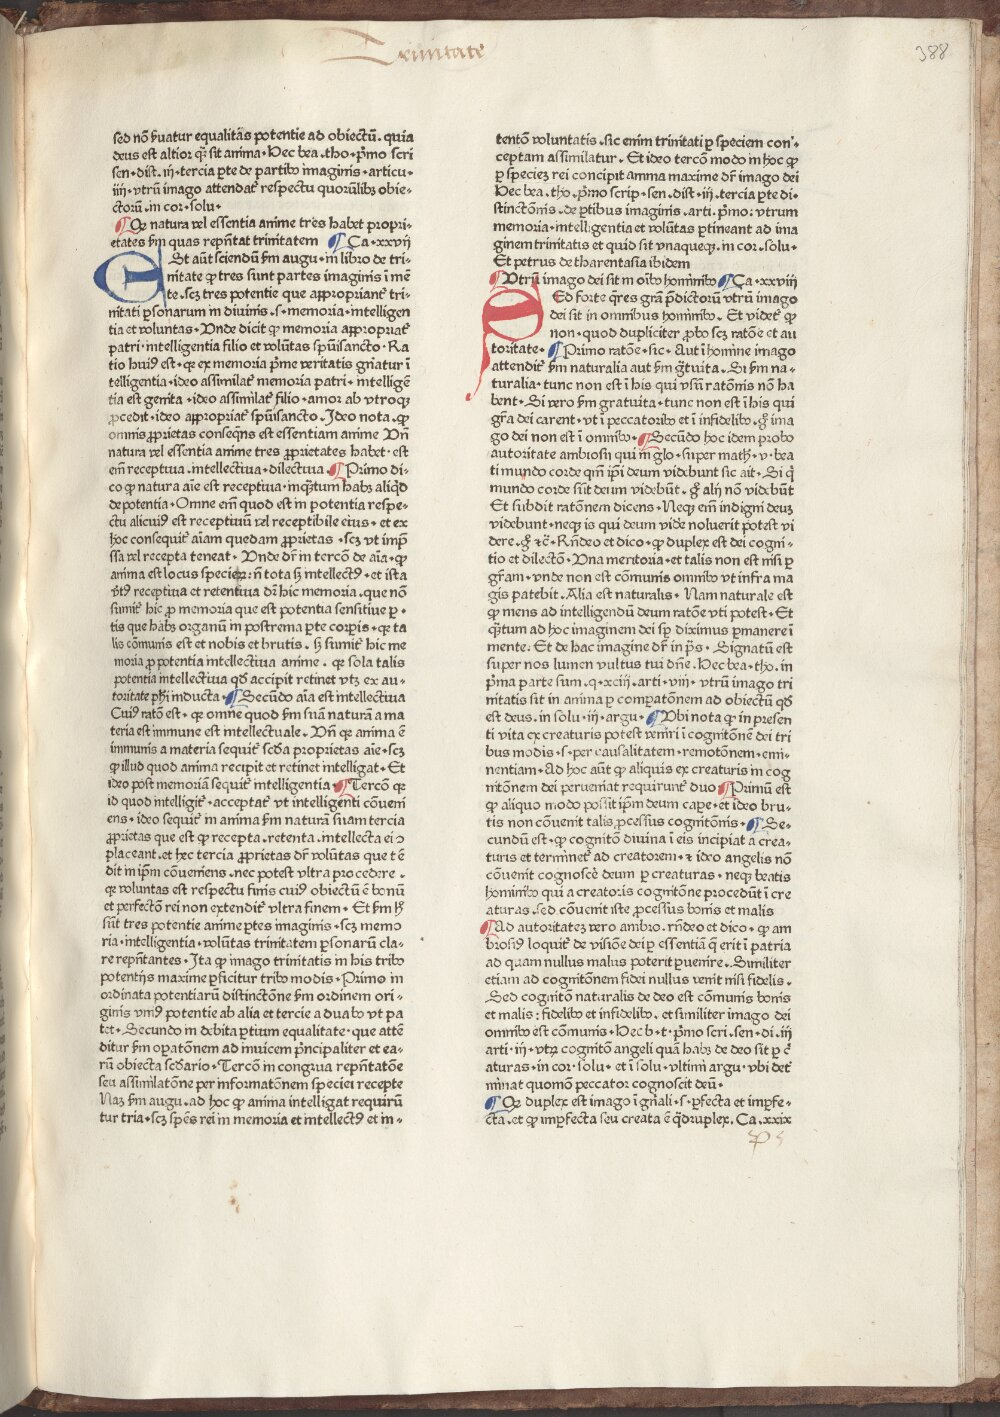 Trinitate
388
sed nō ẜuatur equalitās potentie ad obiectū. quia
deus est altior qȝ sit anima. Hec bea. tho. p̄mo scri
sen. dist. iij. tercia pte de partibꝯ imaginis. articu.
iiij. vtrū imago attendat̉ respectu quorūlibꝫ obie-
ctorū. in cor. solu.
¶ Qꝫ natura vel essentia anime tres habet propri-
etates ẜm quas rep̄ntat trinitatem ¶ Ca. xxvij
ESt aūt sciendū ẜm augu. in libro de tri-
nitate ꝙ tres sunt partes imaginis ī mē
te. scꝫ tres potentie que appropriant̉ tri-
nitati ꝑsonarum in diuinis. s. memoria. intelligen
tia et voluntas. Vnde dicit ꝙ memoria appropriat̉
patri. intelligentia filio et volūtas spūisancto. Ra
tio huiꝰ est. ꝙ ex memoria p̄me veritatis gn̄atur ī
telligentia. ideo assimilat̉ memoria patri. intelligē
tia est genita. ideo assimilat̉ filio. amor ab vtroqꝫ
procedit. ideo appropriat̉ spūisancto. Ideo nota. ꝙ
omnis ꝓprietas conseqn̄s est essentiam anime Vn̄
natura vel essentia anime tres ꝓprietates habet. est
em̄ receptiua. intellectiua. dilectiua ¶ Primo di-
co ꝙ natura aīe est receptiua. inqꝫtum habꝫ aliqͥd
de potentia. Omne em̄ quod est in potentia respe-
ctu alicuiꝰ est receptiuū vel receptibile eius. et ex
hoc consequit̉ aīam quedam ꝓprietas. scꝫ vt imp̄
ssa vel recepta teneat. Vnde dr̄ in tercō de aīa. ꝙ
anima est locus specieꝝ: n̄ tota ꝫ intellectꝰ. et ista
v̉tꝰ receptiua et retentiua dr̄ hic memoria. que nō
sumit̉ hic ꝓ memoria que est potentia sensitiue ꝑ-
tis que habꝫ organū in postrema ꝑte corꝑis. qꝫ ta
lis cōmunis est et nobis et brutis. ꝫ sumit̉ hic me
moria ꝓ potentia intellectiua anime. qꝫ sola talis
potentia intellectiua qd̄ accipit retinet vtꝫ ex au-
toritate ph̄i inducta. ¶ Secūdo aīa est intellectiua
Cuiꝰ ratō est. qꝫ omne quod ẜm suā naturā a ma
teria est immune est intellectuale. Vn̄ qꝫ anima ē
immunis a materia sequit̉ scd̄a proprietas aīe. scꝫ
ꝙ illud quod anima recipit et retinet intelligat. Et
ideo post memoriā sequit̉ intelligentia ¶ Tercō qꝫ
id quod intelligit̉. acceptat̉ vt intelligenti cōueni
ens. ideo sequit̉ in anima ẜm naturā suam tercia
ꝓprietas que est ꝙ recepta. retenta. intellecta ei ↄ
placeant. et hec tercia ꝓprietas dr̄ volūtas que tē
dit in ip̄m cōueniens. nec potest vltra procedere.
qꝫ voluntas est respectu finis cuiꝰ obiectū ē bonū
et perfectō rei non extendit̉ vltra finem. Et ẜm hͨ
sūt tres potentie anime ꝑtes imaginis. scꝫ memo
ria. intelligentia. volūtas trinitatem ꝑsonarū cla-
re rep̄ntantes. Ita ꝙ imago trinitatis in his tribꝯ
potentijs maxime ꝑficitur tribꝯ modis. Primo in
ordinata potentiarū distinctōne ẜm ordinem ori-
ginis vniꝰ potentie ab alia et tercie a duabꝯ vt pa
tet. Secundo in debita ꝑtium equalitate. que attē
ditur ẜm oꝑatōnem ad inuicem p̄ncipaliter et ea-
rū obiecta scd̄ario. Tercō in congrua rep̄ntatōe
seu assimilatōne per informatōnem speciei recepte
Naꝫ ẜm augu. ad hoc ꝙ anima intelligat requirūt̉
tur tria. scꝫ spēs rei in memoria et intellectꝰ et in-
tentō voluntatis. sic enim trinitati ꝑ speciem con-
ceptam assimilatur. Et ideo tercō modo in hoc ꝙ
ꝑ specieꝫ rei concipit anima maxime dr̄ imago dei
Hec bea. tho. p̄mo scrip. sen. dist. iij. tercia ꝑte di-
stinctōnis. de ꝑtibus imaginis. arti. p̄mo: vtrum
memoria. intelligentia et volūtas ꝑtineant ad ima
ginem trinitatis et quid sit vnaqueqꝫ. in cor. solu.
Et petrus de tharentasia ibidem
¶ Vtrū imago dei sit in oībꝯ homībꝯ ¶ Ca. xxviij
SEd forte q̄res gr̄a p̄dictorū vtrū imago
dei sit in omnibus homībꝯ. Et videt̉ ꝙ
non. quod dupliciter ꝓbo scꝫ ratōe et au
toritate. ¶ Primo ratōe. sic. Aut ī homine imago
attendit̉ ẜm naturalia aut ẜm gͣtuita. Si ẜm na-
turalia. tunc non est ī his qui vsū ratōnis nō ha
bent. Si vero ẜm gratuita. tunc non est ī his qui
gr̄a dei carent. vt ī peccatoribꝯ et ī infidelibꝯ. gͦ ima
go dei non est ī omībꝯ. ¶ Secūdo hoc idem probo
autoritate ambrosij qui in glo. super math. v. bea
ti mundo corde qm̄ ip̄i deum videbunt sic ait. Si qͥ
mundo corde sūt deum videbūt. gͦ alij nō videbūt
Et subdit ratōnem dicens. Neqꝫ em̄ indigni deuꝫ
videbunt. neqꝫ is qui deum vide noluerit potest vi
dere. gͦ ⁊c̄. Rn̄deo et dico. ꝙ duplex est dei cogni-
tio et dilectō. Vna meritoria. et talis non est nisi ꝑ
gr̄am. vnde non est cōmunis omnibꝯ vt infra ma
gis patebit. Alia est naturalis. Nam naturale est
ꝙ mens ad intelligendū deum ratōe vti potest. Et
qꝫtum ad hoc imaginem dei sꝑ diximus ꝑmanere ī
mente. Et de hac imagine dr̄ in p̄s. Signatū est
super nos lumen vultus tui dn̄e. Hec bea. tho. in
p̄ma parte sum. q. xciij. arti. viij. vtrū imago tri
nitatis sit in anima ꝑ comꝑatōnem ad obiectū qd̄
est deus. in solu. iij. argu. ¶ Vbi nota ꝙ in presen
ti vita ex creaturis potest veniri ī cognitōnē dei tri
bus modis. s. per causalitatem. remotōnem. emi-
nentiam. Ad hoc aūt ꝙ aliquis ex creaturis in cog
nitōnem dei perueniat requirunt̉ duo ¶ Primū est
ꝙ aliquo modo possit ip̄m deum cape. et ideo bru-
tis non cōuenit talis ꝓcessus cognitōnis. ¶ Se-
cundū est. ꝙ cognitō diuina ī eis incipiat a crea-
turis et terminet̉ ad creatorem. ⁊ ideo angelis nō
cōuenit cognoscē deum ꝑ creaturas. neqꝫ beatis
homībꝯ qui a creatoris cognitōne procedūt ī cre
aturas. sed cōuenit iste ꝓcessus bonis et malis
¶ Ad autoritateꝫ vero ambro. rn̄deo et dico. ꝙ am
brosiꝰ loquit̉ de visiōe dei ꝑ essentiā q̄ erit ī patria
ad quam nullus malus poterit ꝑuenire. Similiter
etiam ad cognitōnem fidei nullus venit nisi fidelis.
Sed cognitō naturalis de deo est cōmunis bonis
et malis: fidelibꝯ et infidelibꝯ. et similiter imago dei
omībꝯ est cōmunis. Hec b. t. p̄mo scri. sen. di. iij
arti. iij. vtꝝ cognitō angeli quā habꝫ de deo sit ꝑ c̄
aturas. in cor. solu. et ī solu. vltimi argu. vbi det̉
minat quomō peccator cognoscit deū.
¶ Qꝫ duplex est imago ī gn̄ali. s. ꝑfecta et imꝑfe-
cta. et ꝙ imꝑfecta seu creata ē qͣdruplex. Ca. xxix